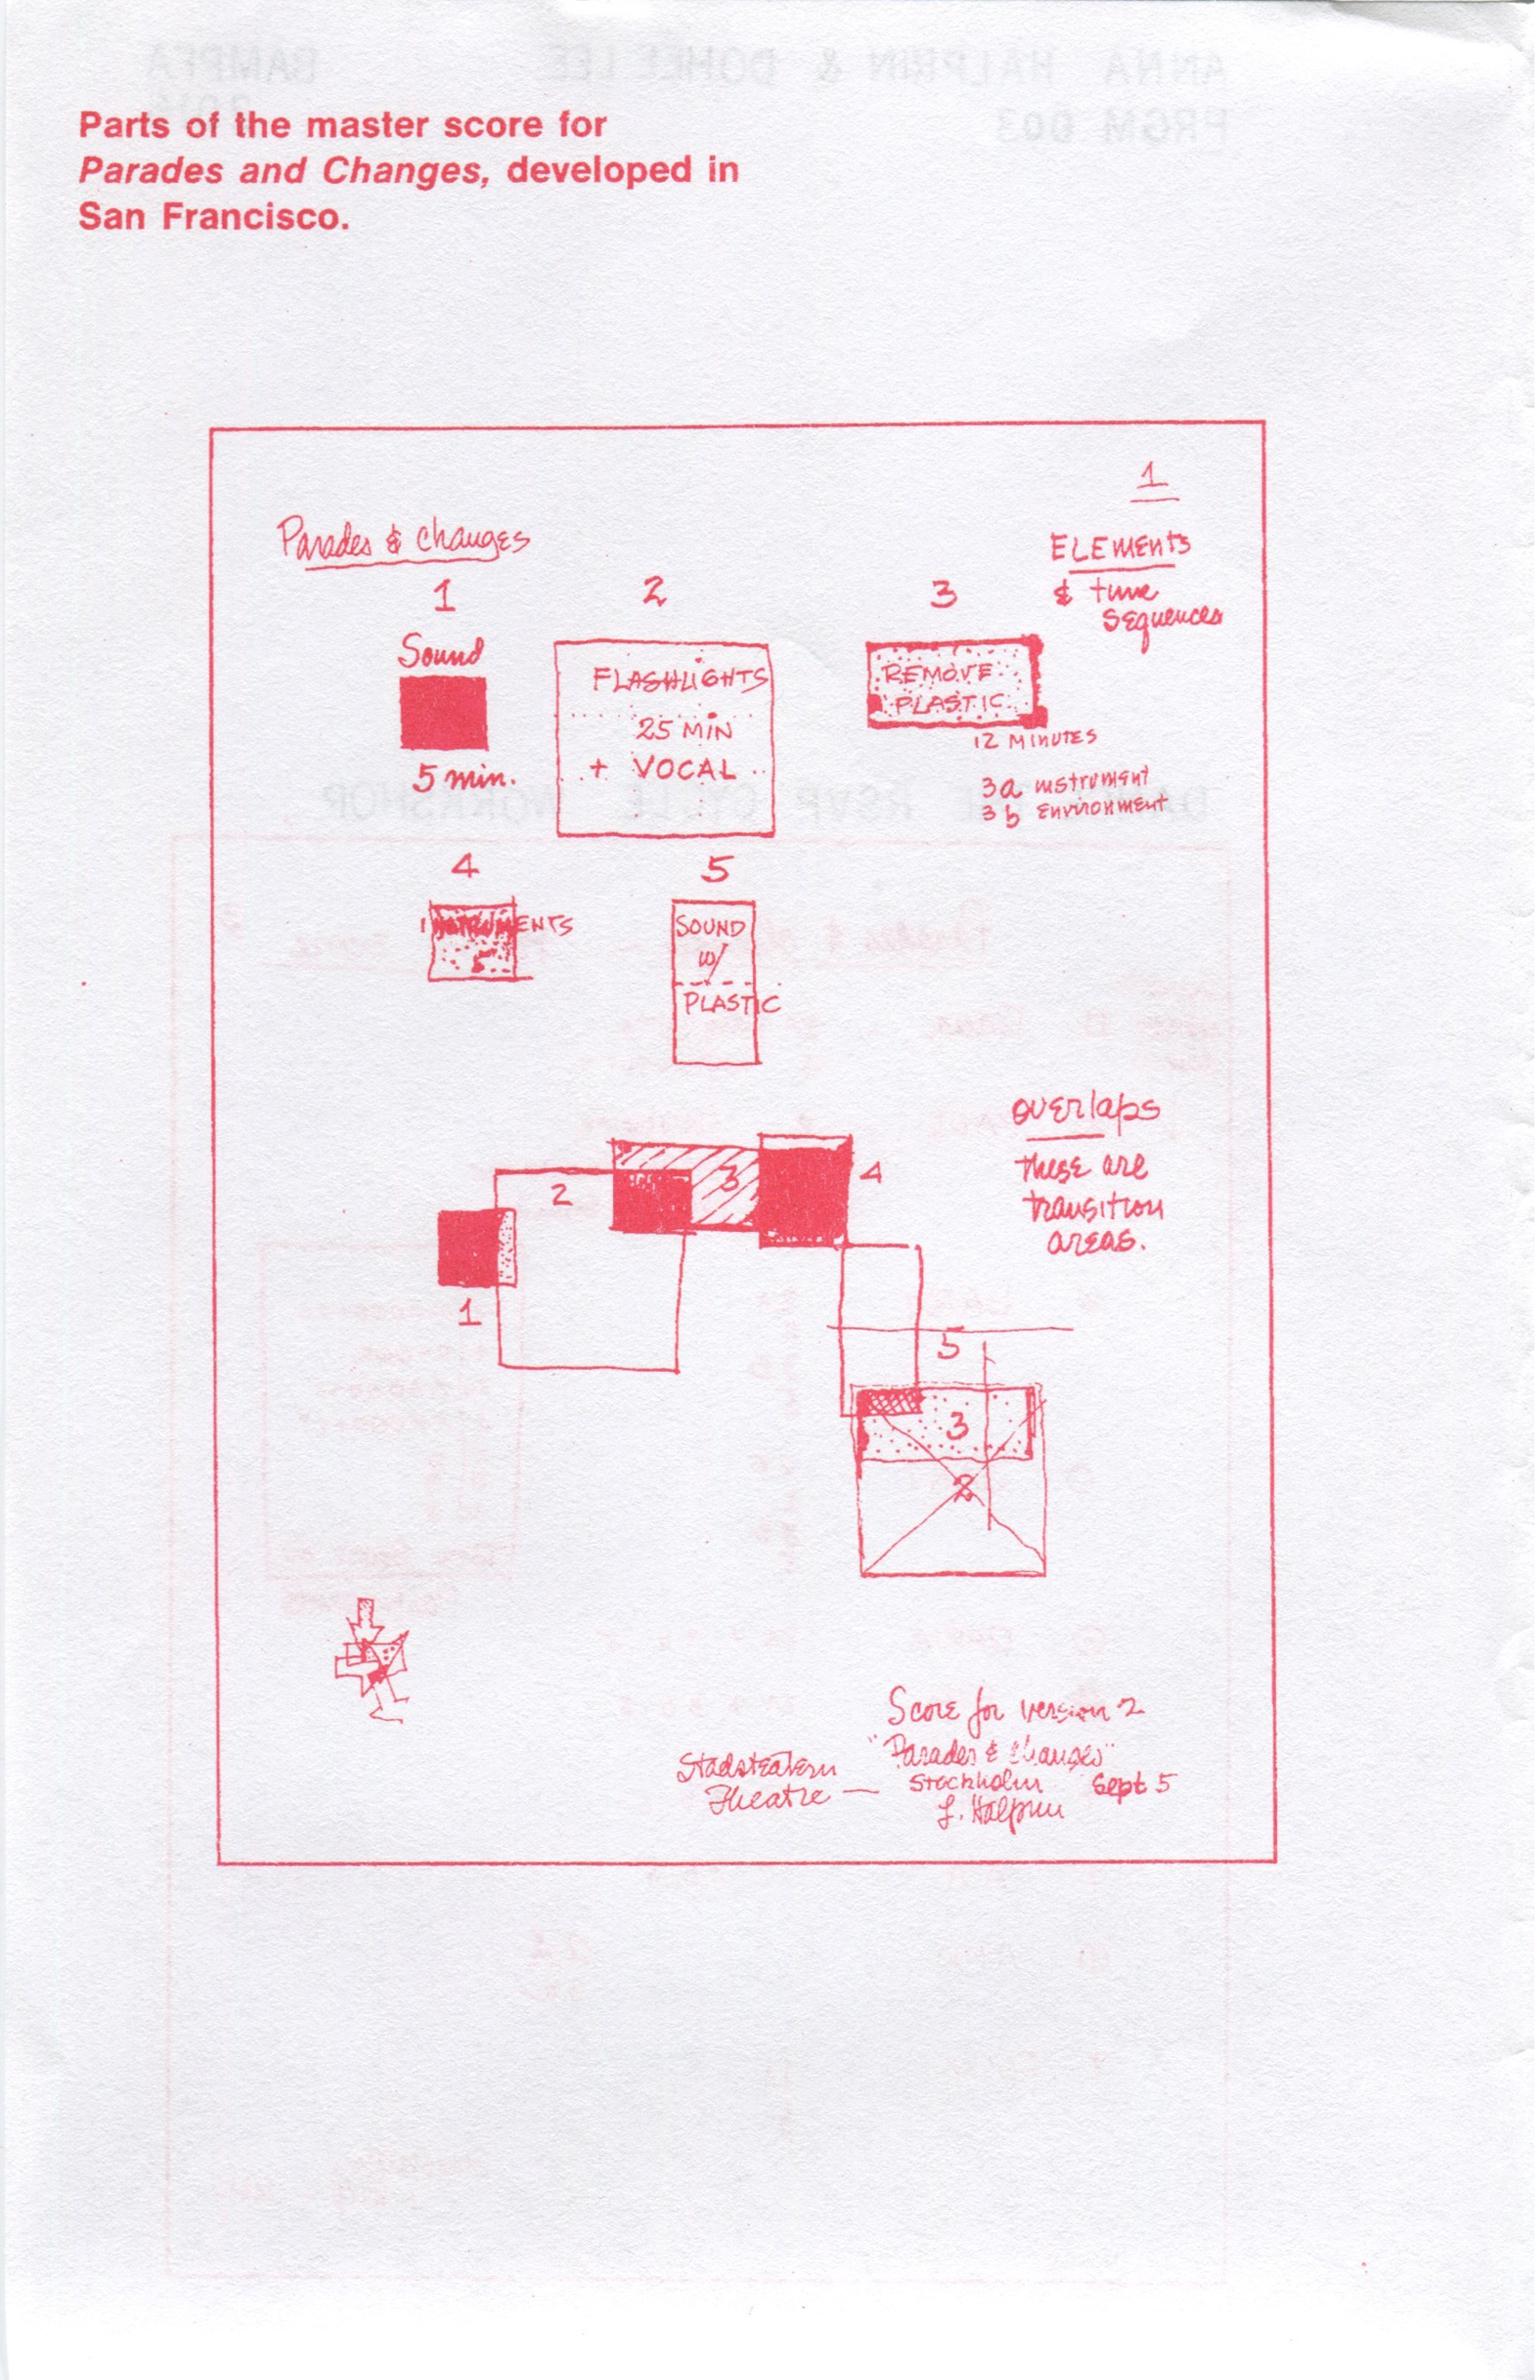 Parts of the master score for
Parades and Changes, developed in
San Francisco.
1
Parades & changes
ELEMENTS
& time
sequences
1
2
3
Sound
5 min.
FLASHLIGHTS
25 MIN
+ VOCAL
REMOVE
PLASTIC
12 MINUTES
3a instrument
3b environment
4
5
INSTRUMENTS
SOUND
w/
PLASTIC
overlaps
these are
transition
areas.
1
2
3
4
5
3
2
Score for version 2
"Parades & changes"
Stadsteatern
Theatre — Stockholm Sept 5
L. Halprin
ANNA HALPRIN & DOHEE LEE BAMPFA
PRGM 003